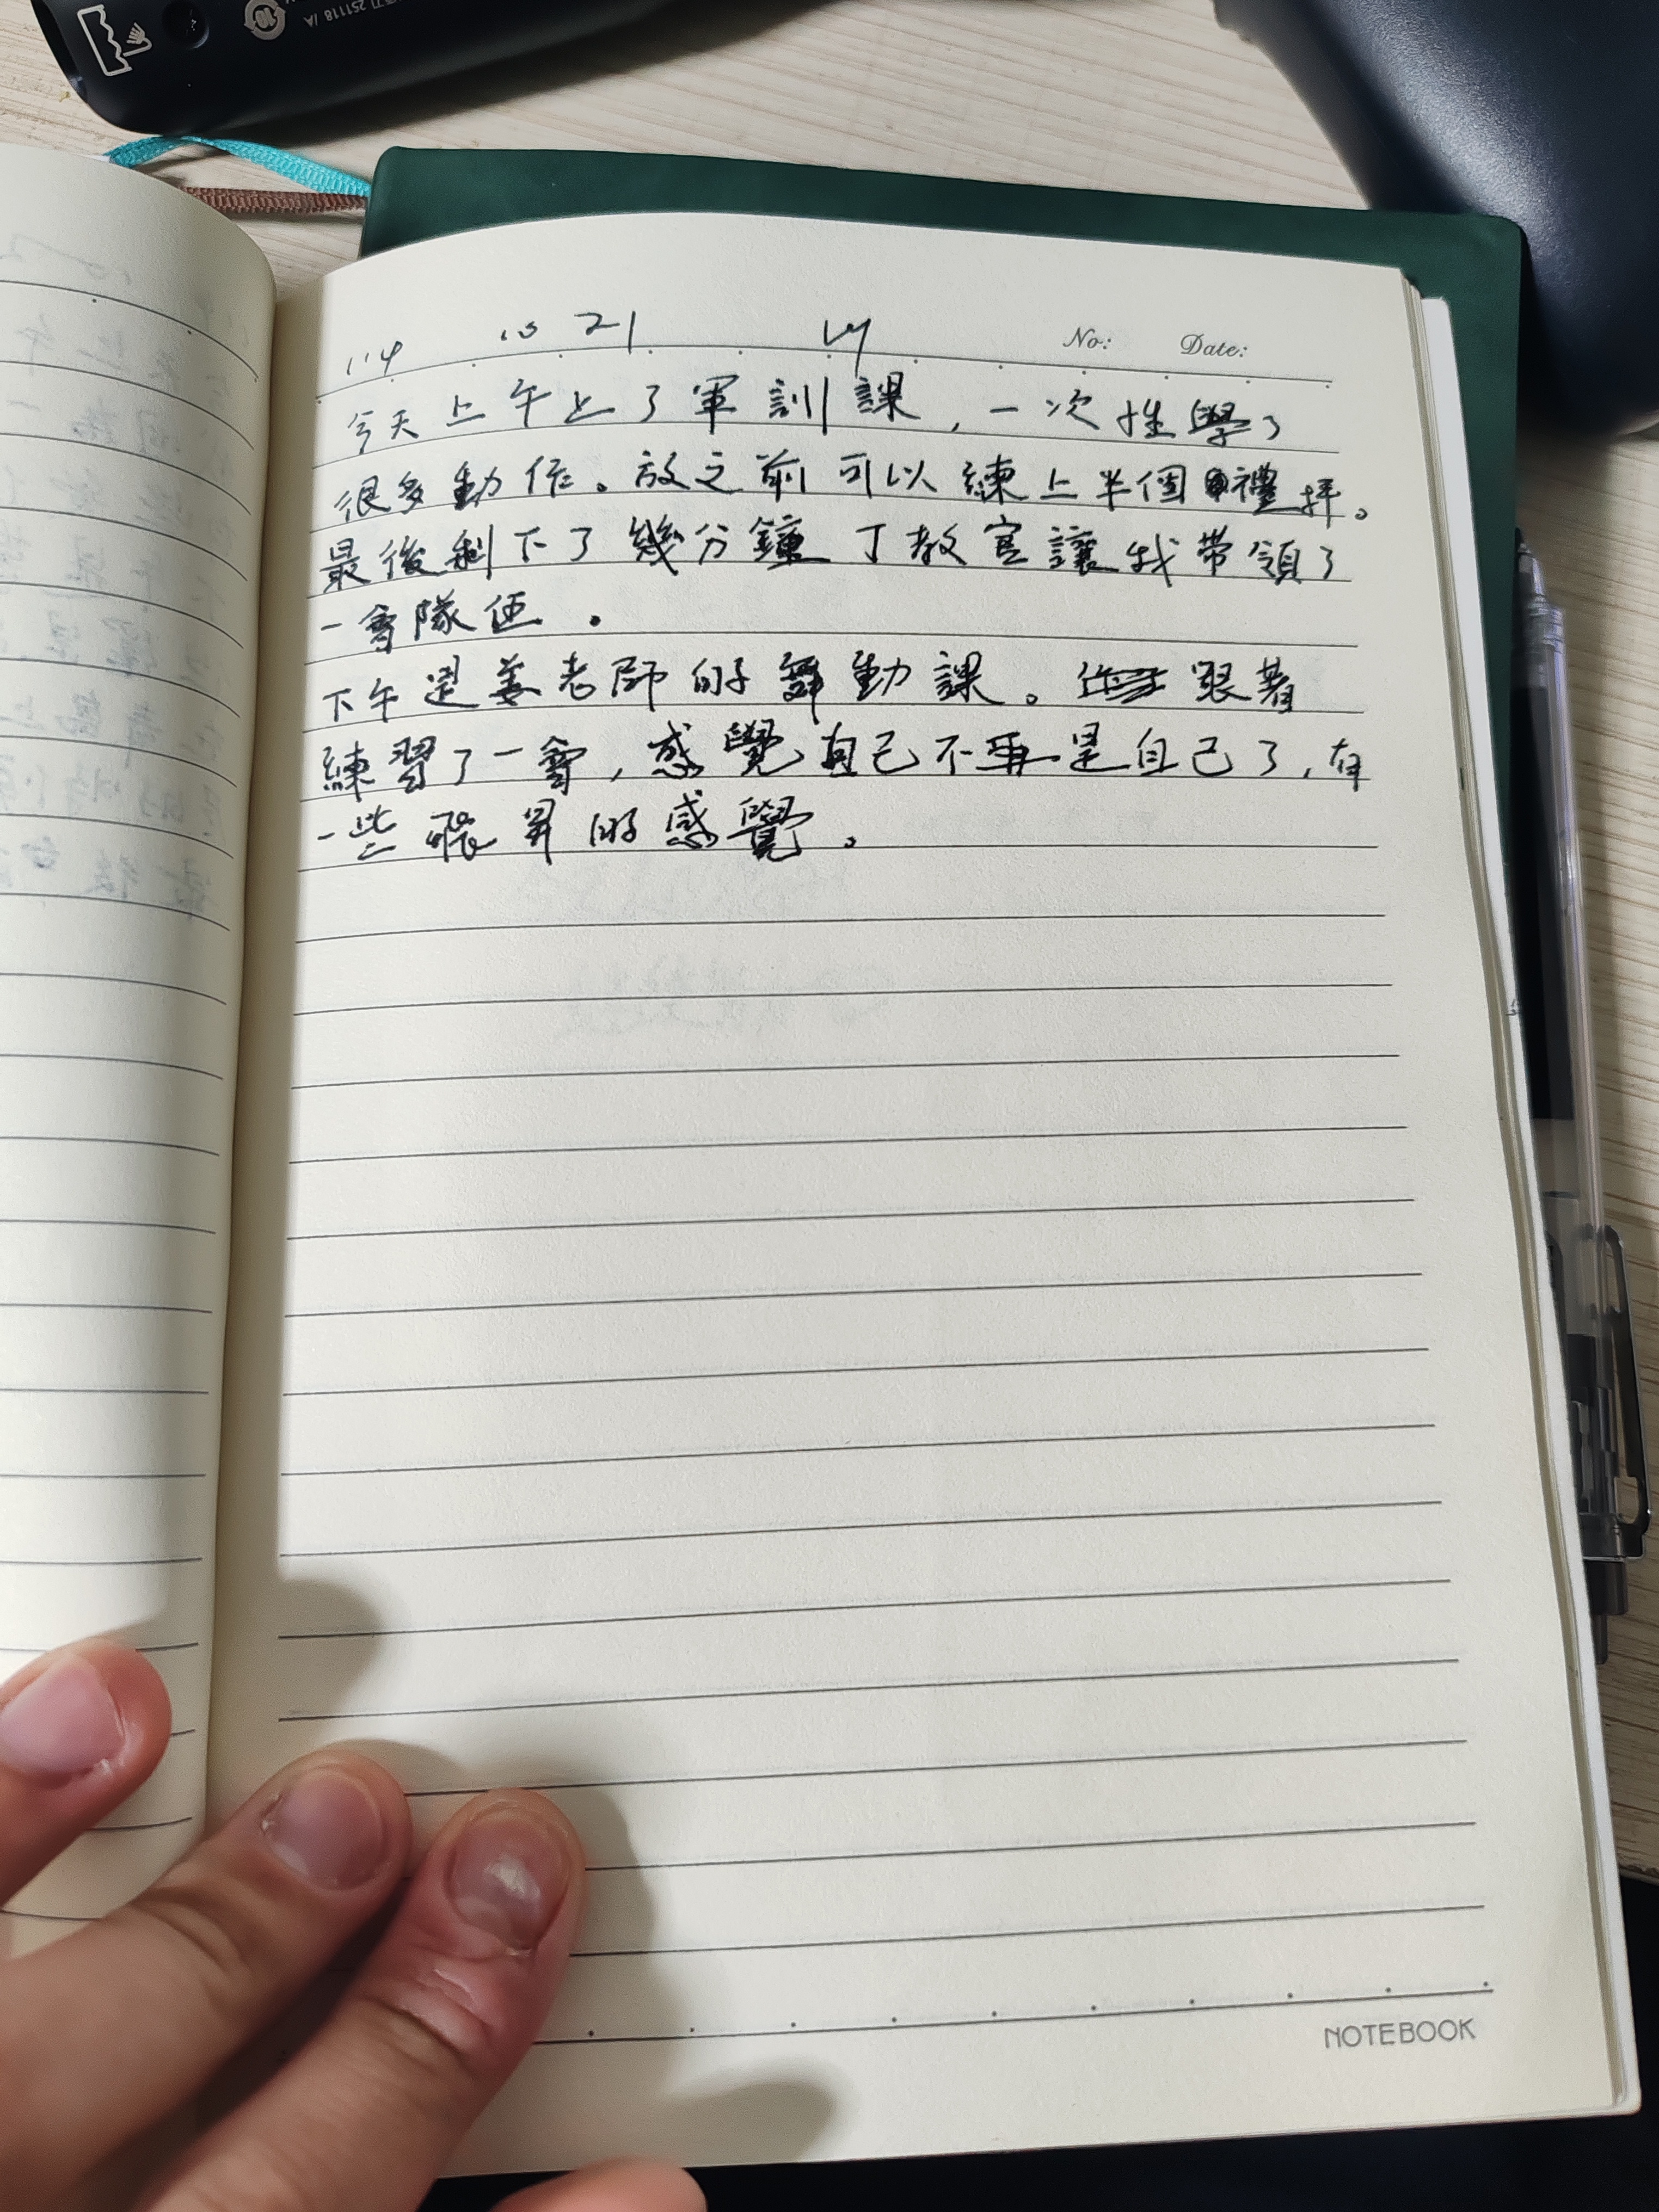 251118 /A
114 10 21
No: Date:
今天上午上了軍訓課,一次性學了
很多動作。放之前可以練上半個禮拜。
最後剩下了幾分鐘丁教官讓我帶領了
一會隊伍.
下午是姜老師的舞動課。跟著
練習了一會,感覺自己不再是自己了,有
一些飛昇的感覺。
NOTEBOOK